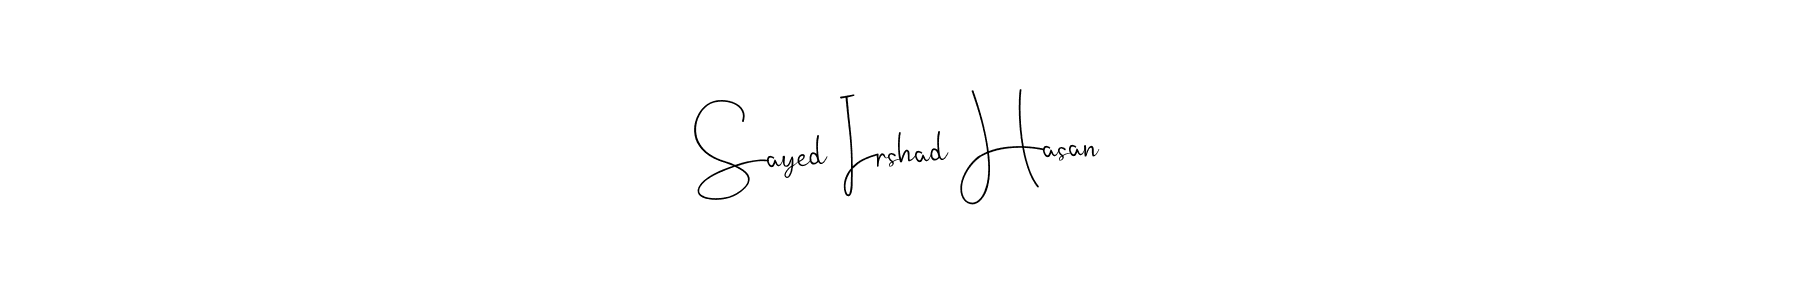 Sayed Irshad Hasan